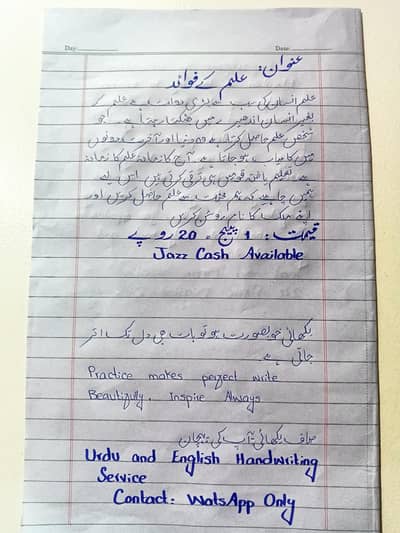 Day:
Date:
عنوان: علم کے فوائد
علم انسان کی سب سے بڑی دولت ہے علم کے
بغیر انسان اندھیرے میں بھٹکتا رہتا ہے۔ جو
شخص علم حاصل کرتا ہے وہ دنیا اور آخرت دونوں
میں کامیاب ہو جاتا ہے آج کا زمانہ علم کا زمانہ
ہے تعلیم یافتہ قومیں ہی ترقی کرتی ہیں اس لیے
ہمیں چاہیے کہ ہم محنت سے علم حاصل کریں اور
اپنے ملک کا نام روشن کریں
قیمت: 1 پیج = 20 روپے
Jazz Cash Available
لکھائی خوبصورت ہو تو بات بھی دل تک اتر
جاتی ہے۔
Practice makes perfect write
Beautifully. Inspire Always
صاف لکھائی آپ کی پہچان
Urdu and English Handwriting
Service
Contact: WatsApp Only